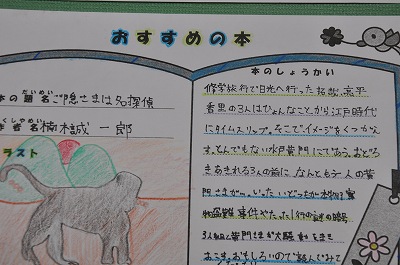 おすすめの本
だいめい
本の題名 ご隠さまは名探偵
くしゃめい
者名 楠木誠一郎
ラスト
本のしょうかい
修学旅行で日光へ行った拓哉、亮平
香里の3人はひょんなことから江戸時代
にタイムスリップ。そこで、イメージをくつがえ
す、とんでもない水戸黄門にであう。おどろ
きあきれる3人の前に、なんともう一人の黄
門さまが…。いったいどっちが本物!? 宝
物盗難事件やたった1行の謎の暗号
3人組と黄門さまが大騒動をまき
おこす。おもしろいので読んでみて